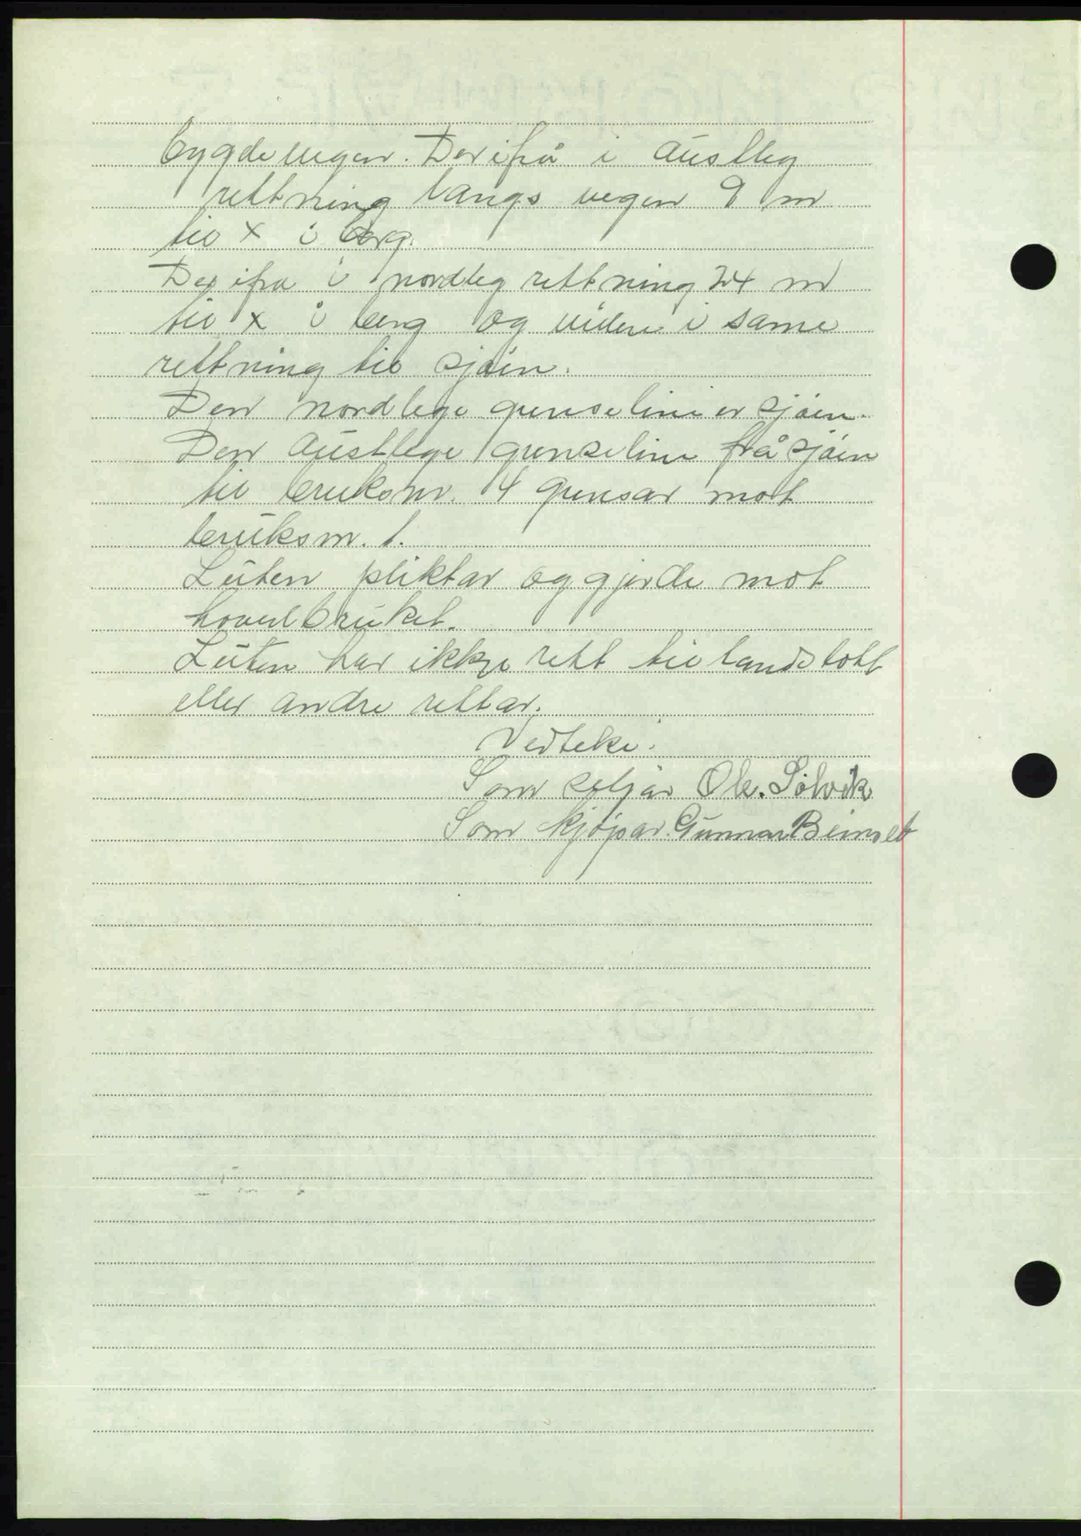 bygdevegen. Der ifrå i austleg
rettning langs vegen 9 m
til x i berg.
Der ifra i nordleg rettning 24 m
til x i berg og videre i same
rettning til sjøen.
Den nordlege grenselina er sjøen.
Den austlege grenselina frå sjøen
til bruksnr. 4 grensar mot
bruksnr. 1.
Luten pliktar og gjerde mot
hovedbruket.
Luten har ikkje rett til landstøtt
eller andre rettar.
Vedteke:
Som seljar Ole. Solvik
Som kjøpar. Gunnar